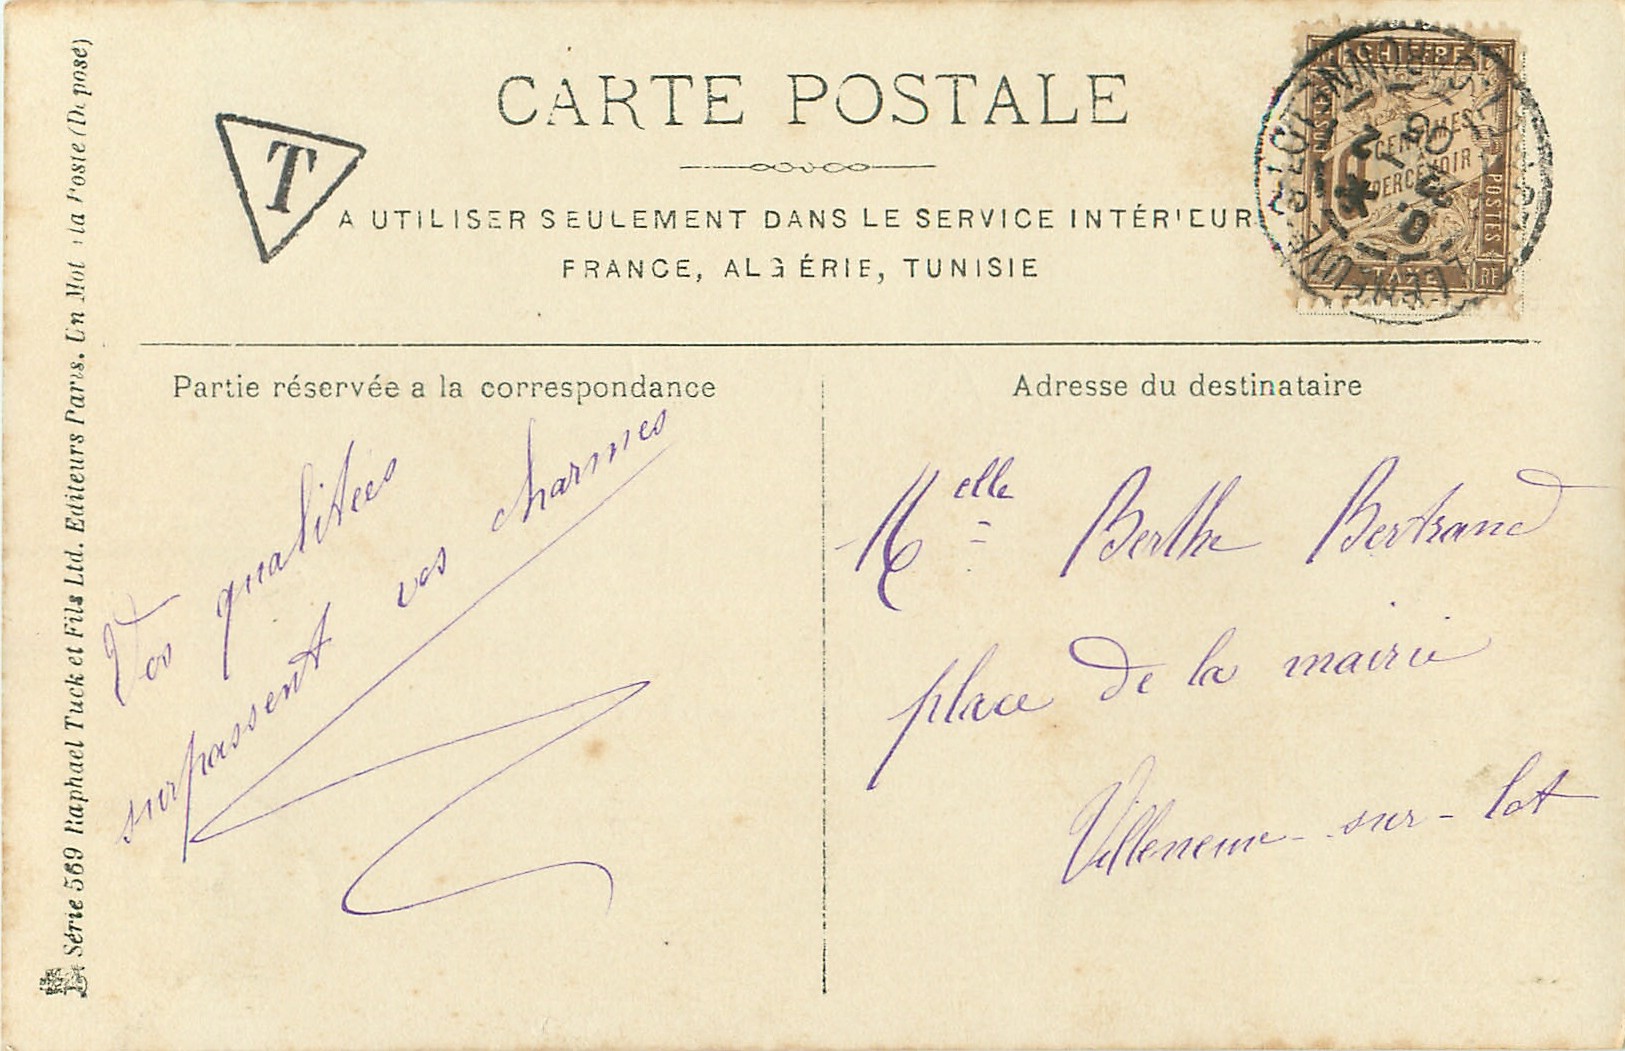 CARTE POSTALE
T
A UTILISER SEULEMENT DANS LE SERVICE INTÉRIEUR
FRANCE, ALGÉRIE, TUNISIE
CHIFFRE
CENTIMES
A
PERCEVOIR
POSTES
TAXE
RF
VILLENEUVE-S-LOT
Partie réservée a la correspondance
Vos qualitées
surpassent vos charmes
Adresse du destinataire
Melle Berthe Bertrand
place de la mairie
Villeneuve-sur-lot
Série 569 Raphael Tuck et Fils Ltd. Editeurs Paris. Un Mot à la Poste (Déposé)